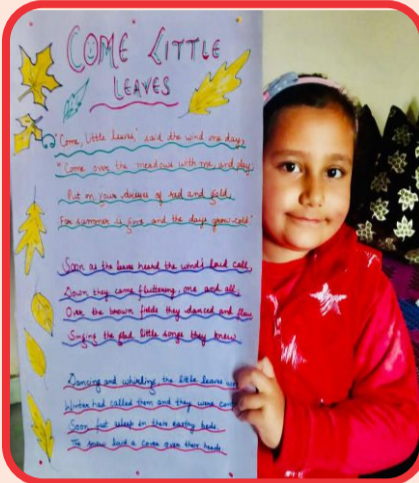 COME LITTLE
LEAVES
"Come, little leaves," said the wind one day,
"Come over the meadows with me, and play;
Put on your dresses of red and gold,
For summer is gone and the days grow cold"
Soon as the leaves heard the wind's loud call,
Down they came fluttering, one and all
Over the brown fields they danced and flew
Singing the glad little songs they knew
Dancing and whirling the little leaves
Winter had called them and they were
Soon fast asleep in their earthy beds
The snow laid a cover over their heads.